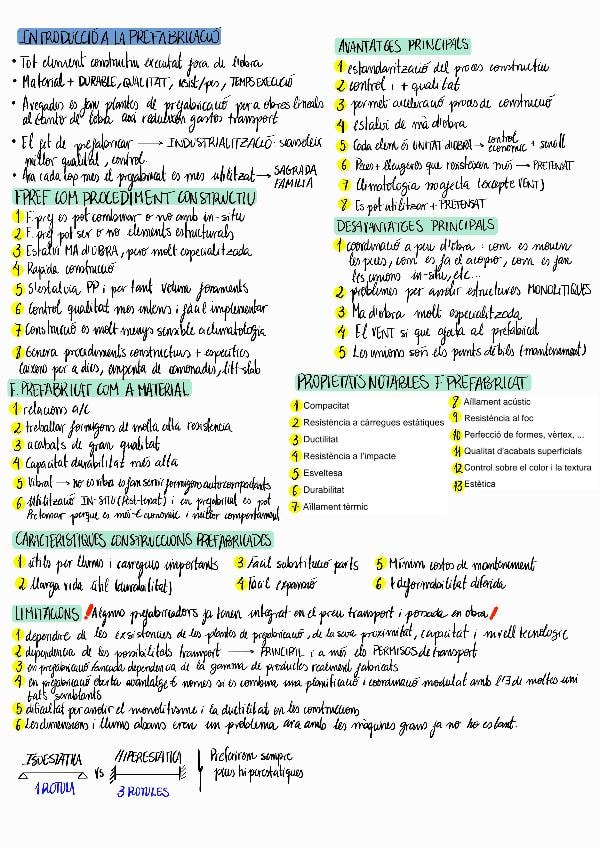 INTRODUCCIÓ A LA PREFABRICACIÓ
• Tot element constructiu executat fora de l'obra
• Material + DURABLE, QUALITAT, resist/pes, TEMPS EXECUCIÓ
• Avegades es fan plantes de prefabricació per a obres lineals
al llarg de l'obra així redueixen gastos transport
• El fet de prefabricar → INDUSTRIALITZACIÓ
millor qualitat, control.
• Ara cada cop més el prefabricat es mes utilitzat → SAGRADA
FAMILIA
F.PREF COM PROCEDIMENT CONSTRUCTIU
1 F. prej es pot combinar o no amb in-situ
2 F. prej pot ser o no elements estructurals
3 Estalvi MA d'OBRA, pero molt especialitzada
4 Rapida construcció
5 S'estalvia PP i per tant volum fonaments
6 Control qualitat mes intens i fàcil implementar
7 Construcció es molt menys sensible a climatologia
8 Genera procediments constructius + especifics
caixons per a dics, empenta de carronades, lift-slab
F. PREFABRICAT COM A MATERIAL
1 relacions a/c
2 treballar formigons de molta alta resistència
3 acabats de gran qualitat
4 Capacitat durabilitat més alta
5 Vibrat → no es vibra es fan servir formigons autocompactants
6 Utilització IN-SITU (Post-tenat) i en prefabricat es pot
Pretensar perque es més € economic i millor comportament
AVANTATGES PRINCIPALS
1 estandarització del proces constructiu
2 control i + qualitat
3 permet acceleració procés de construcció
4 estalvi de mà d'obra
5 Cada elem és UNITAT D'OBRA → control economic + senzill
6 Peces + lleugeres que resisteixen més → PRETENSAT
7 Climatologia no afecta (excepte VENT)
8 Es pot utilitzar + PRETENSAT
DESAVANTATGES PRINCIPALS
1 coordinació a peu d'obra: com es mouen
les peces, com es fa el acopio, com es fan
les unions in-situ, etc...
2 problemes per assolir estructures MONOLITIQUES
3 Ma d'obra molt especialitzada
4 El VENT si que afecta al prefabricat
5 Les unions són els punts dèbils (manteniment)
PROPIETATS NOTABLES F. PREFABRICAT
1 Compacitat
2 Resistència a càrregues estàtiques
3 Ductilitat
4 Resistència a l'impacte
5 Esveltesa
6 Durabilitat
7 Aïllament tèrmic
8 Aïllament acústic
9 Resistència al foc
10 Perfecció de formes, vèrtex, ...
11 Qualitat d'acabats superficials
12 Control sobre el color i la textura
13 Estètica
CARACTERISTIQUES CONSTRUCCIONS PREFABRICADES
1 útils per llums i carregues importants
2 llarga vida útil (durabilitat)
3 Fàcil substitució parts
4 fàcil expansió
5 Mínim costos de manteniment
6 + deformabilitat diferida
LIMITACIONS ! Alguns prefabricadors ja tenen integrat en el preu transport i posada en obra!
1 dependre de les existències de les plantes de prefabricació, de la seva proximitat, capacitat i nivell tecnologic
2 dependencia de les possibilitats transport → PRINCIPAL i a més els PERMISOS de transport
3 en prefabricació tancada dependencia de la gamma de productes realment fabricats
4 en prefabricació oberta avantatge € nomes si es combina una planificació i coordinació modulat amb l'Ǝ de moltes uni
tats semblants
5 dificultat per assolir el monolitisme i la ductilitat en les construccions
6 Les dimensions i llums abans eren un problema ara amb les màquines grans ja no ho es tant.
ISOESTATICA
1 ROTULA
vs
HIPERESTATICA
3 ROTULES
Preferirem sempre
peces hiperestàtiques